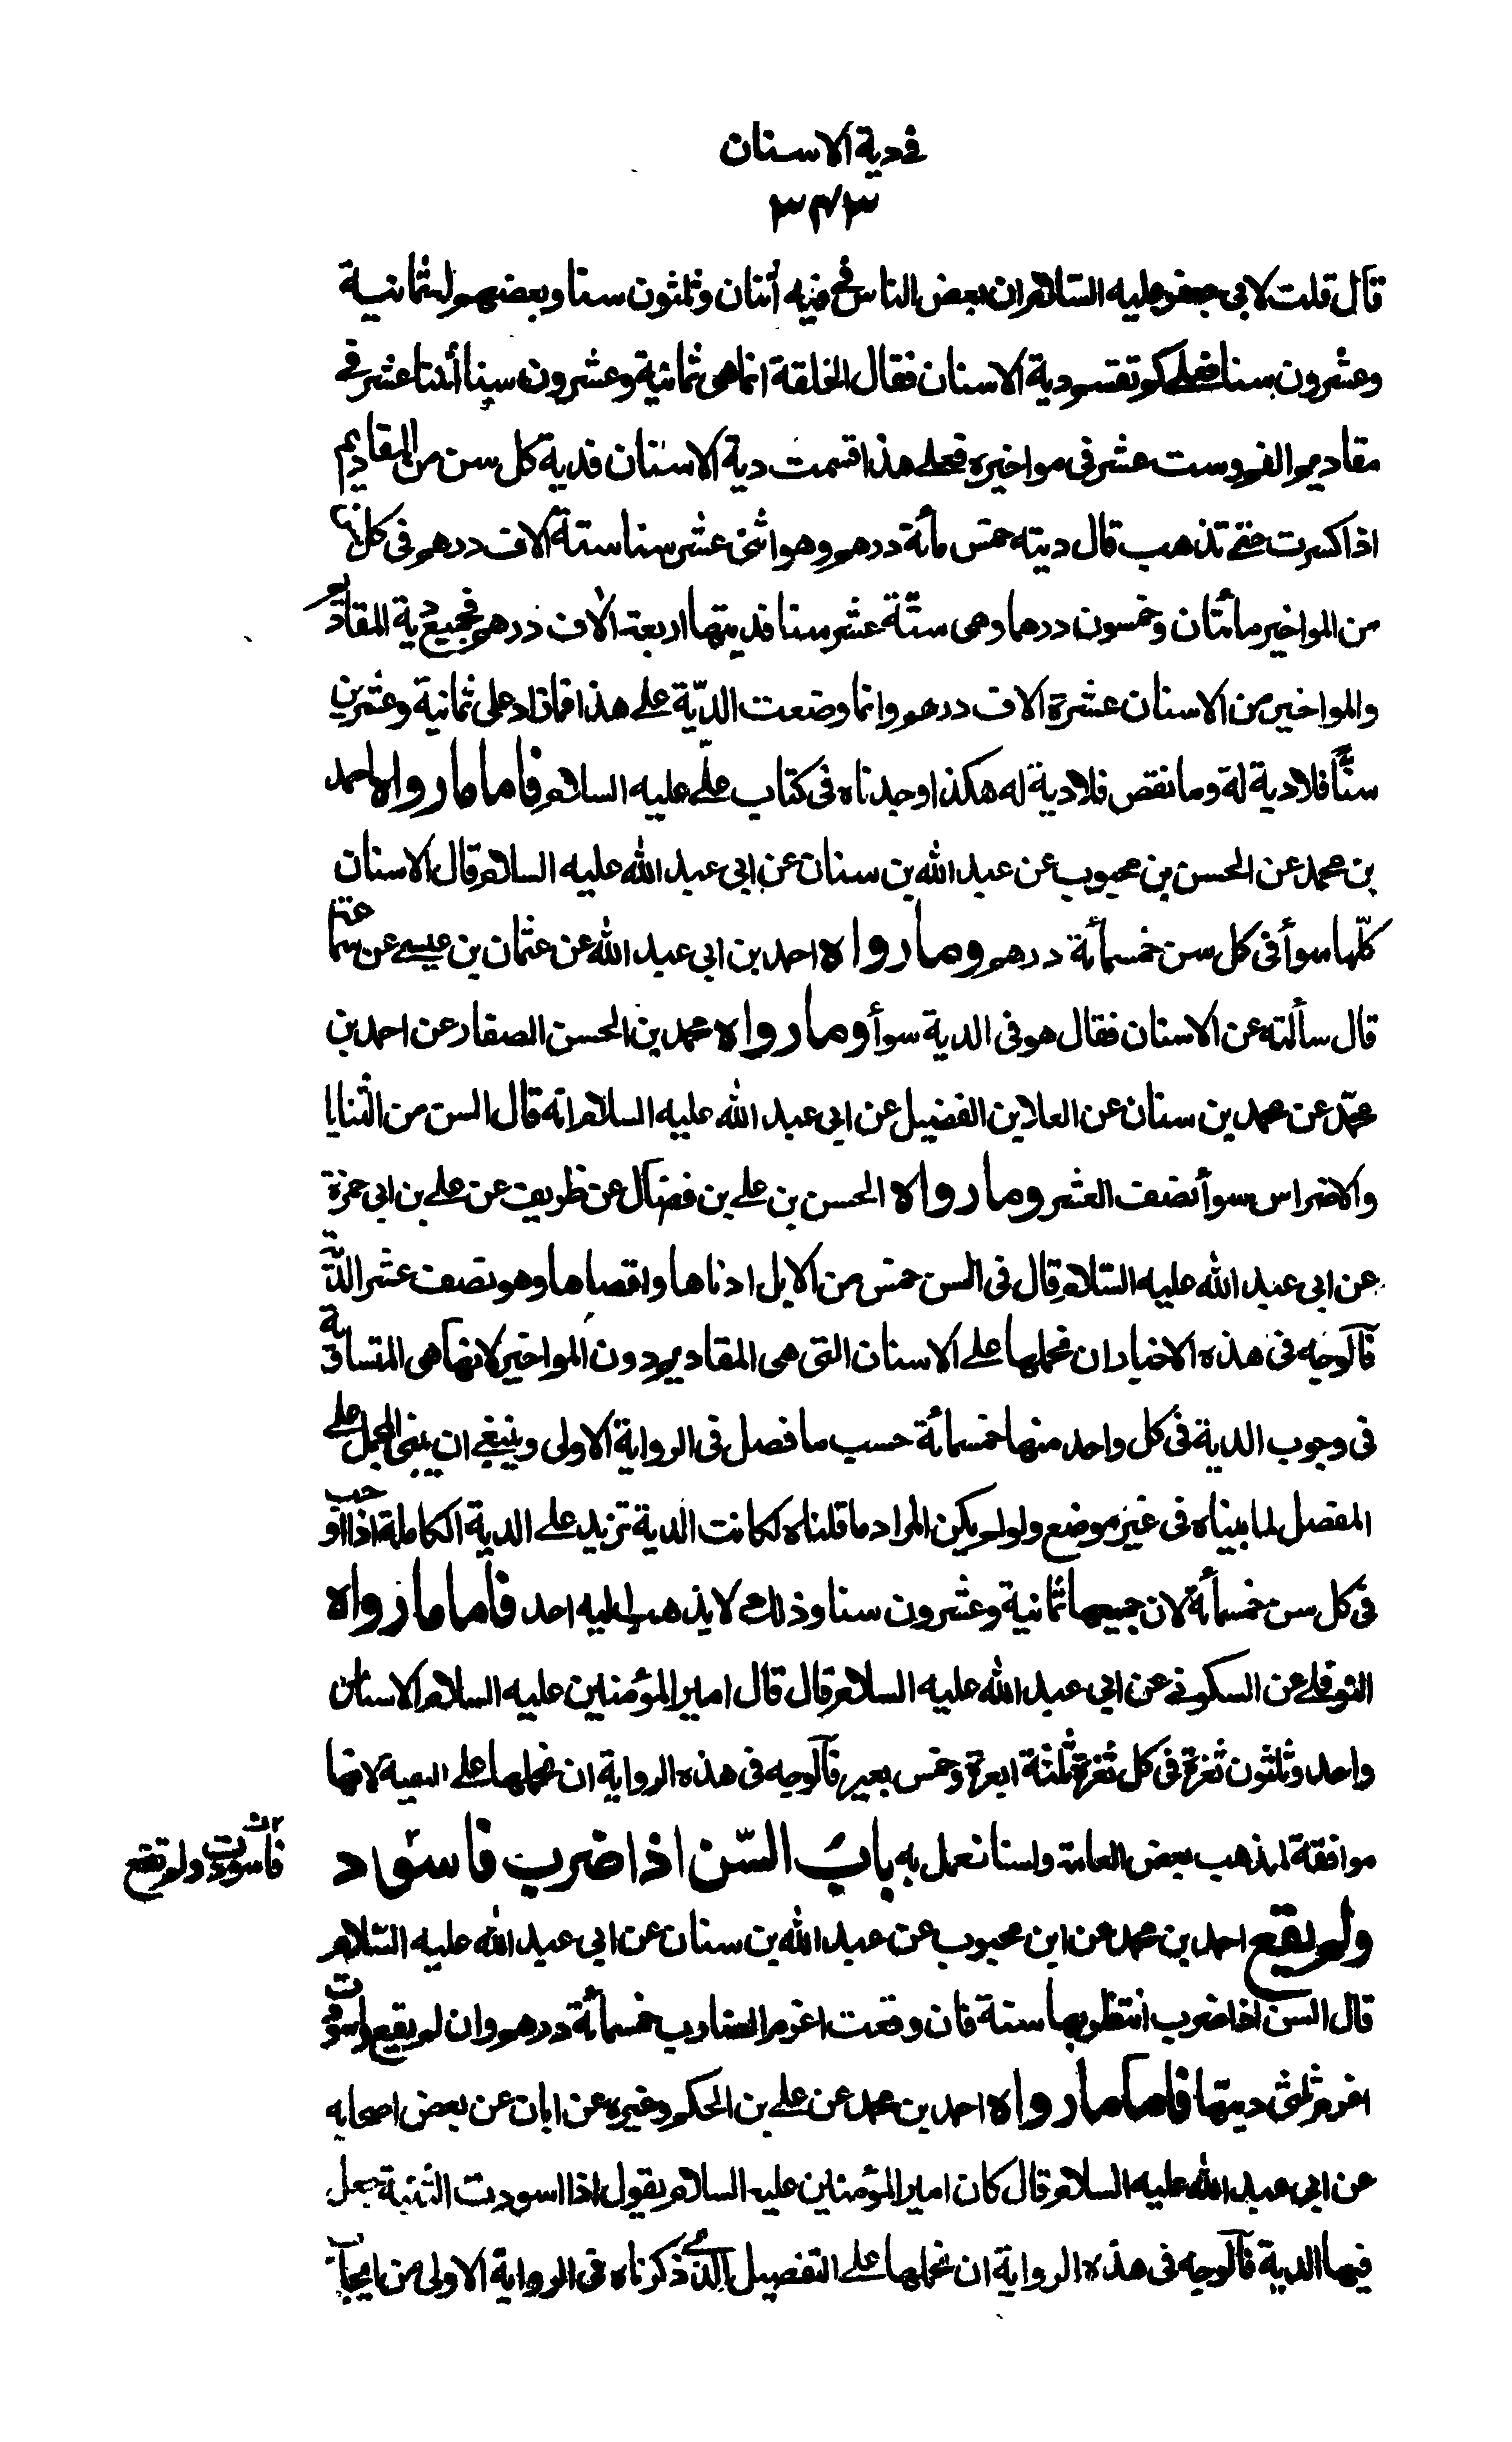 في دية الاسنان
٣٤٣
قال قلت لابي جعفر عليه السلام ان بعض الناس في فيه أثنان وثلثون سنا وبعضهم له ثمانية
وعشرون سنا فعلى كم تقسم دية الاسنان فقال الخلقة انما هي ثمانية وعشرون سنا أثنتا عشر في
مقاديم الفم وست عشر في مواخيره فعلى هذا قسمت دية الاسنان فدية كل سن من المقاديم
اذا كسرت حتى تذهب قال ديته خمس مأة درهم وهو اثنى عشر سنا ستة آلاف درهم في كل
من المواخير مأتان وخمسون درهما وهي ستة عشر سنا فديتها اربعة الاف درهم فجميع دية المقاديم
والمواخير من الاسنان عشرة الاف درهم وانما وضعت الديّة على هذا فما زاد على ثمانية وعشرين
سنًّا فلا دية له وما نقص فلا دية له هكذا وجدناه في كتاب علّي عليه السلام فاما ما رواه احمد
بن محمد عن الحسن بن محبوب عن عبد الله بن سنان عن ابي عبد الله عليه السلام قال الاسنان
كلّها سوأ في كل سن خمسمأة درهم وما رواه احمد بن ابي عبد الله عن عثمان بن عيسى عن سماعة
قال سألته عن الاسنان فقال هو في الدية سوأ وما رواه محمد بن الحسن الصفار عن احمد بن
محمّد عن محمد بن سنان عن العلا بن الفضيل عن ابي عبد الله عليه السلام انه قال السن من الثنايا
والاضراس سوأ نصف العشر وما رواه الحسن بن علي بن فضال عن ظريف عن علي بن ابي حمزة
عن ابي عبد الله عليه السّلام قال في السن خمس من الابل ادناها واقصاها وهو نصف عشر الدّية
فآلوجه في هذه الاخبار ان نحملها على الاسنان التي هي المقاديم دون المواخير لانها هي المتساوية
في وجوب الدية في كل واحد منها خمسمائة حسب ما فصل في الرواية الاولى وينبغي ان يبنى المجمل على
المفصل لما بيناه في غير موضع ولو لم يكن المراد ما قلناه لكانت الدية تزيد على الدية الكاملة اذا اوجب
في كل سن خمسمأة لان جميعها ثمانية وعشرون سنا وذلك لا يذهب اليه احد فاما ما رواه
النوفلى عن السكوني عن ابي عبد الله عليه السلام قال قال امير المؤمنين عليه السلام الاسنان
واحد وثلثون ثغرة في كل ثغرة ثلثة ابعرة وخمس بعير فآلوجه في هذه الرواية ان نحملها على التقية لانها
موافقة لمذهب بعض العامة ولسنا نعمل به بابُ السّن اذا ضرب فاسّواد
فاسودت ولم تقع
ولم يقع احمد بن محمد عن ابن محبوب عن عبد الله بن سنان عن ابي عبد الله عليه السّلام
قال السن اذا ضرب انتظر بها سنة فان وقعت اغرم الضارب خمسمأة درهم وان لم يقع واسودّت
اغرم ثلثى ديتها فاما ما رواه احمد بن محمد عن علي بن الحكم وغيره عن ابان عن بعض اصحابه
عن ابي عبد الله عليه السلام قال كان امير المؤمنين عليه السلام يقول اذا اسودت الثنية جعل
فيها الدية فآلوجه في هذه الرواية ان نحملها على التفصيل الذي ذكرناه في الرواية الاولى من ايجاب